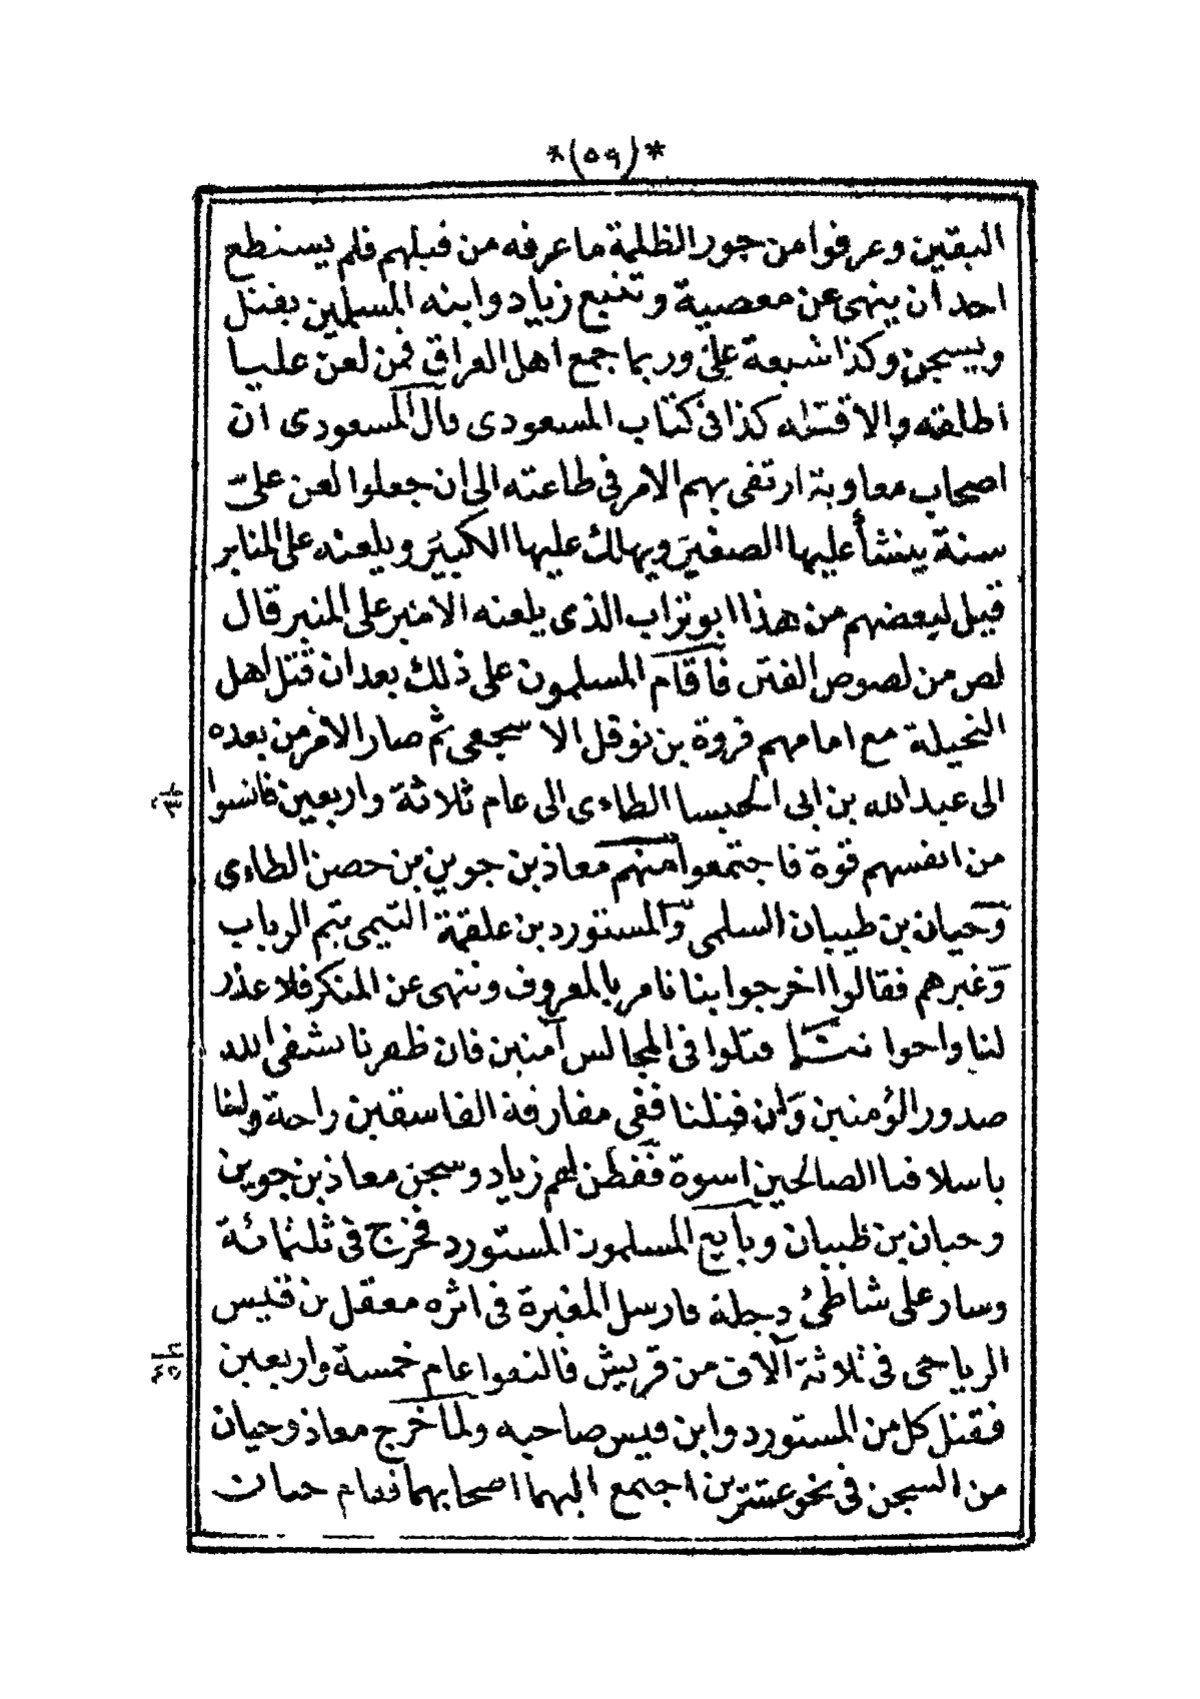 *(٥٩)*
اليقين وعرفوا من جور الظلمة ما عرفه من قبلهم فلم يستطع
احد ان ينهى عن معصية وتتبع زياد وابنه المسلمين بقتل
ويسجن وكذا شيعة علي وربما جمع اهل العراق فمن لعن عليا
اطلقه والا قتله كذا في كتاب المسعودى قال المسعودى ان
اصحاب معاوية ارتقى بهم الامر في طاعته الى ان جعلوا لعن علي
سنة ينشأ عليها الصغير ويهلك عليها الكبير ويلعنه على المنابر
قيل لبعضهم من هذا ابو تراب الذى يلعنه الامير على المنبر قال
لص من لصوص الفتن فاقام المسلمون على ذلك بعد ان قتل اهل
النخيلة مع امامهم فروة بن نوفل الاشجعى ثم صار الامر من بعده
الى عبد الله بن ابى الحيسا الطاءى الى عام ثلاثة واربعين فانسوا
٤٣
من انفسهم قوة فاجتمعوا منهم معاذ بن جوين بن حصن الطاءى
وحيان بن ظبيان السلمى والمستورد بن علقمة التيمى تيم الرباب
وغيرهم فقالوا اخرجوا بنا نامر بالمعروف وننهى عن المنكر فلا عذر
لنا واخوا ننا قتلوا في المجالس آمنين فان ظهرنا نشفى الله
صدور المؤمنين وان قتلنا ففي مفارقة الفاسقين راحة ولنا
باسلافنا الصالحين اسوة ففطن لهم زياد وسجن معاذ بن جوين
وحيان بن ظبيان وبايع المسلمون المستورد فخرج في ثلثمائة
وسار على شاطئ دجلة فارسل المغيرة في اثره معقل بن قيس
الرياحى في ثلاثة آلاف من قريش فالتقوا عام خمسة واربعين
٤٥
فقتل كل من المستورد وابن قيس صاحبه ولما خرج معاذ وحيان
من السجن في نحو عشرين اجتمع اليهما اصحابهما فقام حيان